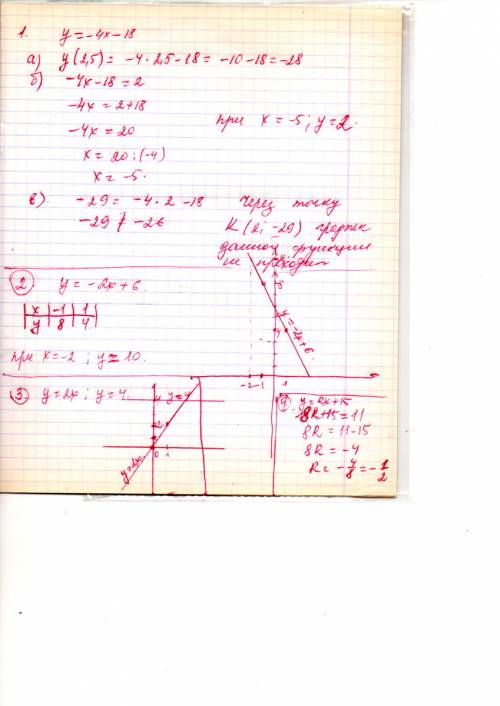 1. y = -4x - 18
а) y(2,5) = -4 · 2,5 - 18 = -10 - 18 = -28
б) -4x - 18 = 2
-4x = 2 + 18
-4x = 20
x = 20 : (-4)
x = -5.
при x = -5; y = 2.
в) -29 = -4 · 2 - 18
-29 ≠ -26
Через точку
K(2; -29) график
данной функции
не проходит
2 y = -2x + 6.
x -1 1
y 8 4
при x = -2; y = 10.
8
4
y = -2x+6
-2 -1 1
3 y = 2x; y = 4.
4 y = 4
2
0 1
y=2x
y = kx + 15
8k + 15 = 11
8k = 11 - 15
8k = -4
k = -4/8 = -1/2